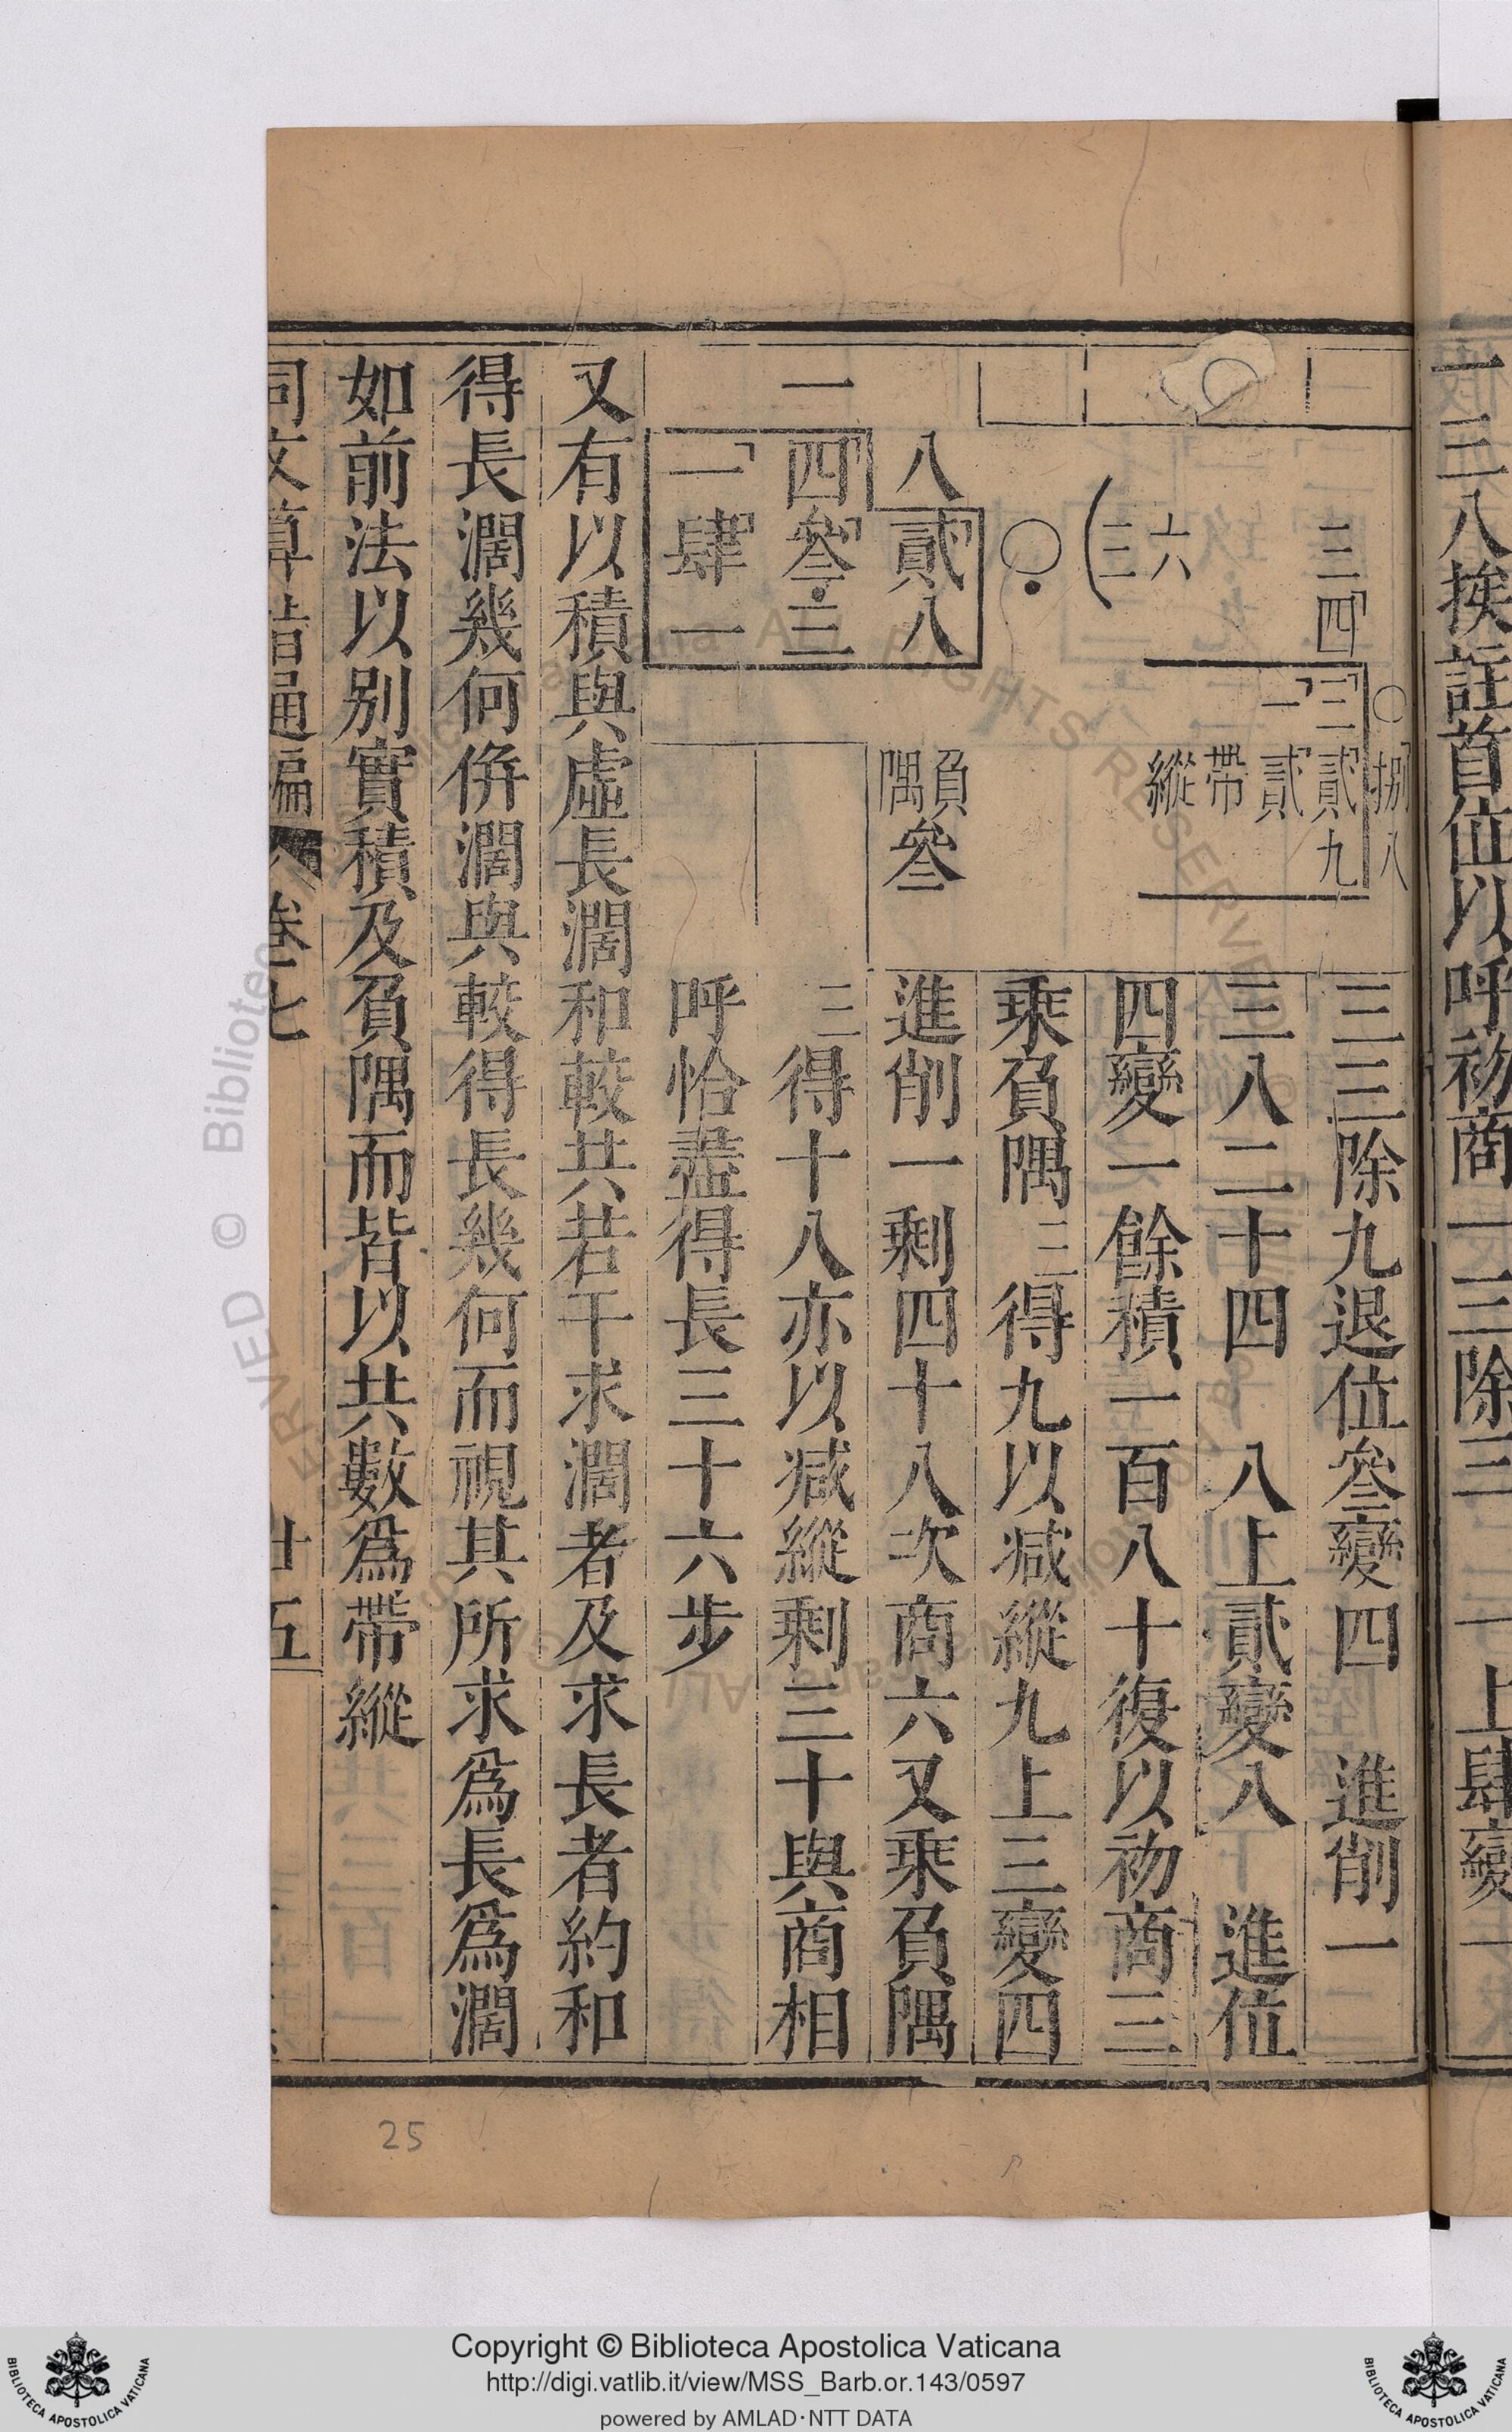 一三八挨註首位以呼初商一三除三 一上肆變一
三三除九退位叄變四 進削一
三八二十四 八上貳變八 進位
四變一餘積一百八十復以初商三
乘負隅三得九以減縱九上三變四
進削一剩四十八次商六又乘負隅
三得十八亦以減縱剩三十與商相
呼恰盡得長三十六步
三四
〇
三貳九
捌八
一貳
帶
縱
六
三
〇
八貳八
一四叄三
一肆一
負隅叄
又有以積與虛長濶和較共若干求濶者及求長者約和
得長濶幾何倂濶與較得長幾何而視其所求爲長爲濶
如前法以别實積及負隅而皆以共數爲帶縱
同文算指通編 卷七 廿五
25
Copyright © Biblioteca Apostolica Vaticana
http://digi.vatlib.it/view/MSS_Barb.or.143/0597
powered by AMLAD·NTT DATA
BIBLIOTECA APOSTOLICA VATICANA
BIBLIOTECA APOSTOLICA VATICANA